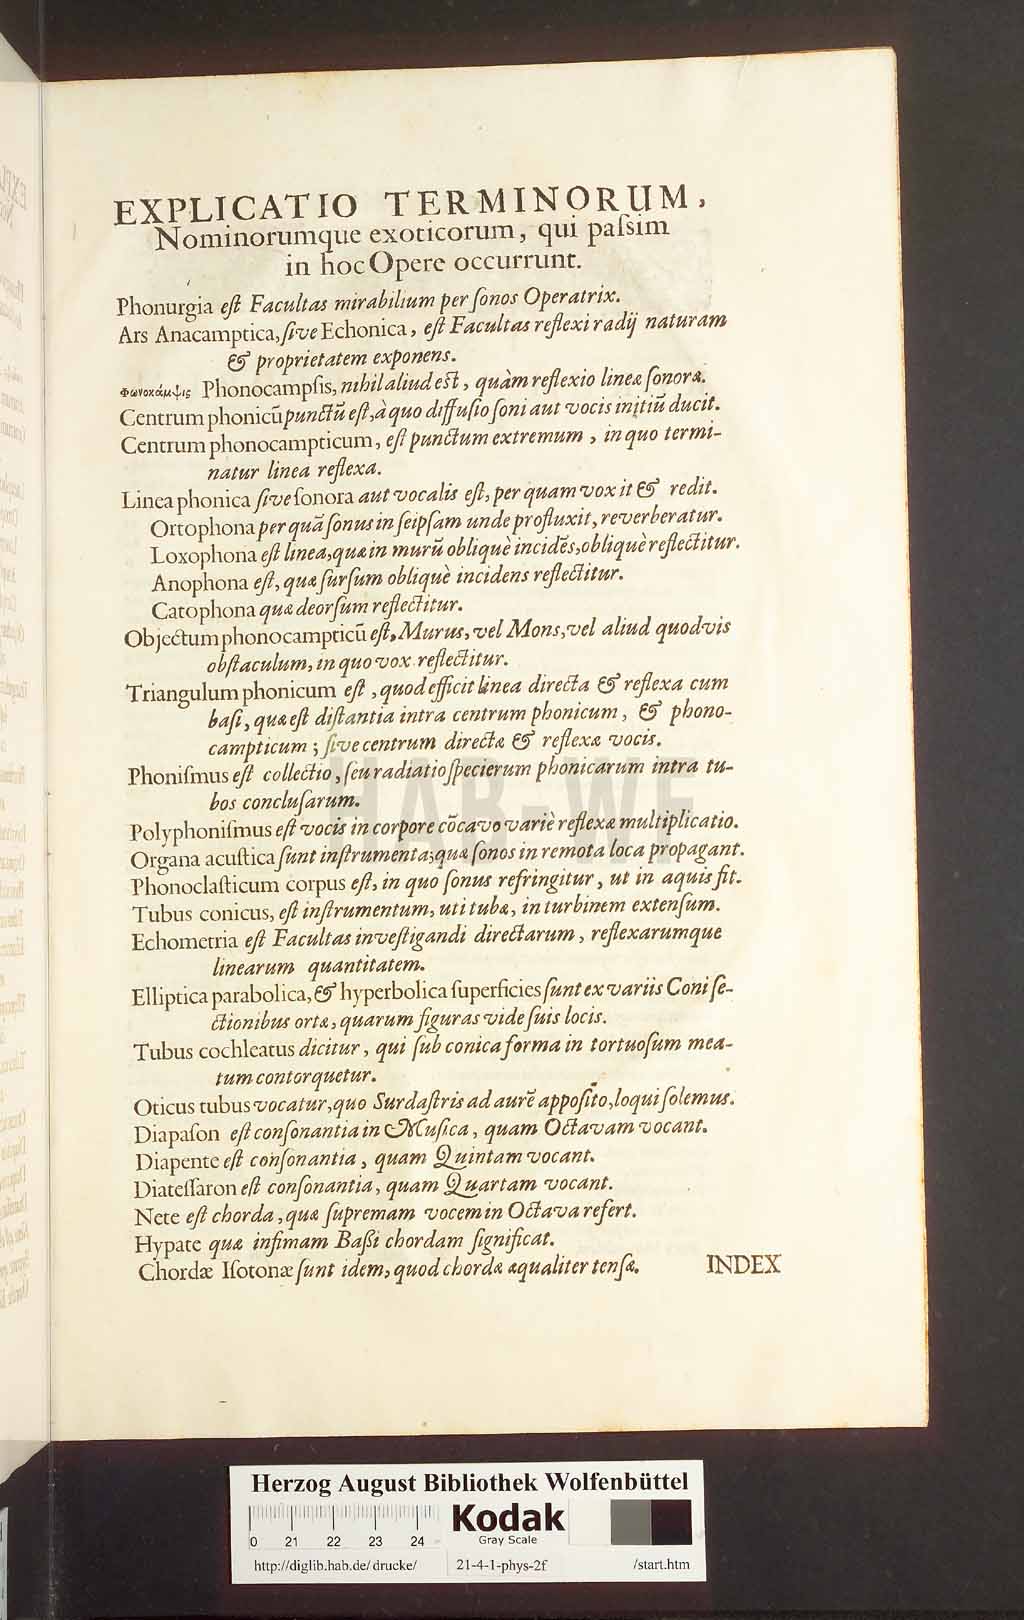 EXPLICATIO TERMINORUM,
Nominorumque exoticorum, qui paſsim
in hoc Opere occurrunt.
Phonurgia eſt Facultas mirabilium per ſonos Operatrix.
Ars Anacamptica, ſive Echonica, eſt Facultas reflexi radij naturam
& proprietatem exponens.
Φωνοκάμψις Phonocampſis, nihil aliud est, quàm reflexio lineæ ſonoræ.
Centrum phonicũ punctũ eſt, à quo diffuſio ſoni aut vocis initiũ ducit.
Centrum phonocampticum, eſt punctum extremum, in quo termi-
natur linea reflexa.
Linea phonica ſive ſonora aut vocalis eſt, per quam vox it & redit.
Ortophona per quã ſonus in ſeipſam unde profluxit, reverberatur.
Loxophona eſt linea, quæ in murũ obliquè incidẽs, obliquè reflectitur.
Anophona eſt, quæ ſurſum obliquè incidens reflectitur.
Catophona quæ deorſum reflectitur.
Objectum phonocampticũ eſt, Murus, vel Mons, vel aliud quodvis
obſtaculum, in quo vox reflectitur.
Triangulum phonicum eſt, quod efficit linea directa & reflexa cum
baſi, quæ eſt diſtantia intra centrum phonicum, & phono-
campticum; ſive centrum directæ & reflexæ vocis.
Phoniſmus eſt collectio, ſeu radiatio ſpecierum phonicarum intra tu-
bos concluſarum.
Polyphoniſmus eſt vocis in corpore cõcavo variè reflexæ multiplicatio.
Organa acuſtica ſunt inſtrumenta, quæ ſonos in remota loca propagant.
Phonoclaſticum corpus eſt, in quo ſonus refringitur, ut in aquis fit.
Tubus conicus, eſt inſtrumentum, uti tubæ, in turbinem extenſum.
Echometria eſt Facultas inveſtigandi directarum, reflexarumque
linearum quantitatem.
Elliptica parabolica, & hyperbolica ſuperficies ſunt ex variis Coni ſe-
ctionibus ortæ, quarum figuras vide ſuis locis.
Tubus cochleatus dicitur, qui ſub conica forma in tortuoſum mea-
tum contorquetur.
Oticus tubus vocatur, quo Surdaſtris ad aurẽ appoſito, loqui ſolemus.
Diapaſon eſt conſonantia in Muſica, quam Octavam vocant.
Diapente eſt conſonantia, quam Quintam vocant.
Diateſſaron eſt conſonantia, quam Quartam vocant.
Nete eſt chorda, quæ ſupremam vocem in Octava refert.
Hypate quæ infimam Baßi chordam ſignificat.
Chordæ Iſotonæ ſunt idem, quod chordæ æqualiter tenſæ.
INDEX
HAB-WF
Herzog August Bibliothek Wolfenbüttel
0 21 22 23 24
Kodak
Gray Scale
http://diglib.hab.de/drucke/ 21-4-1-phys-2f /start.htm